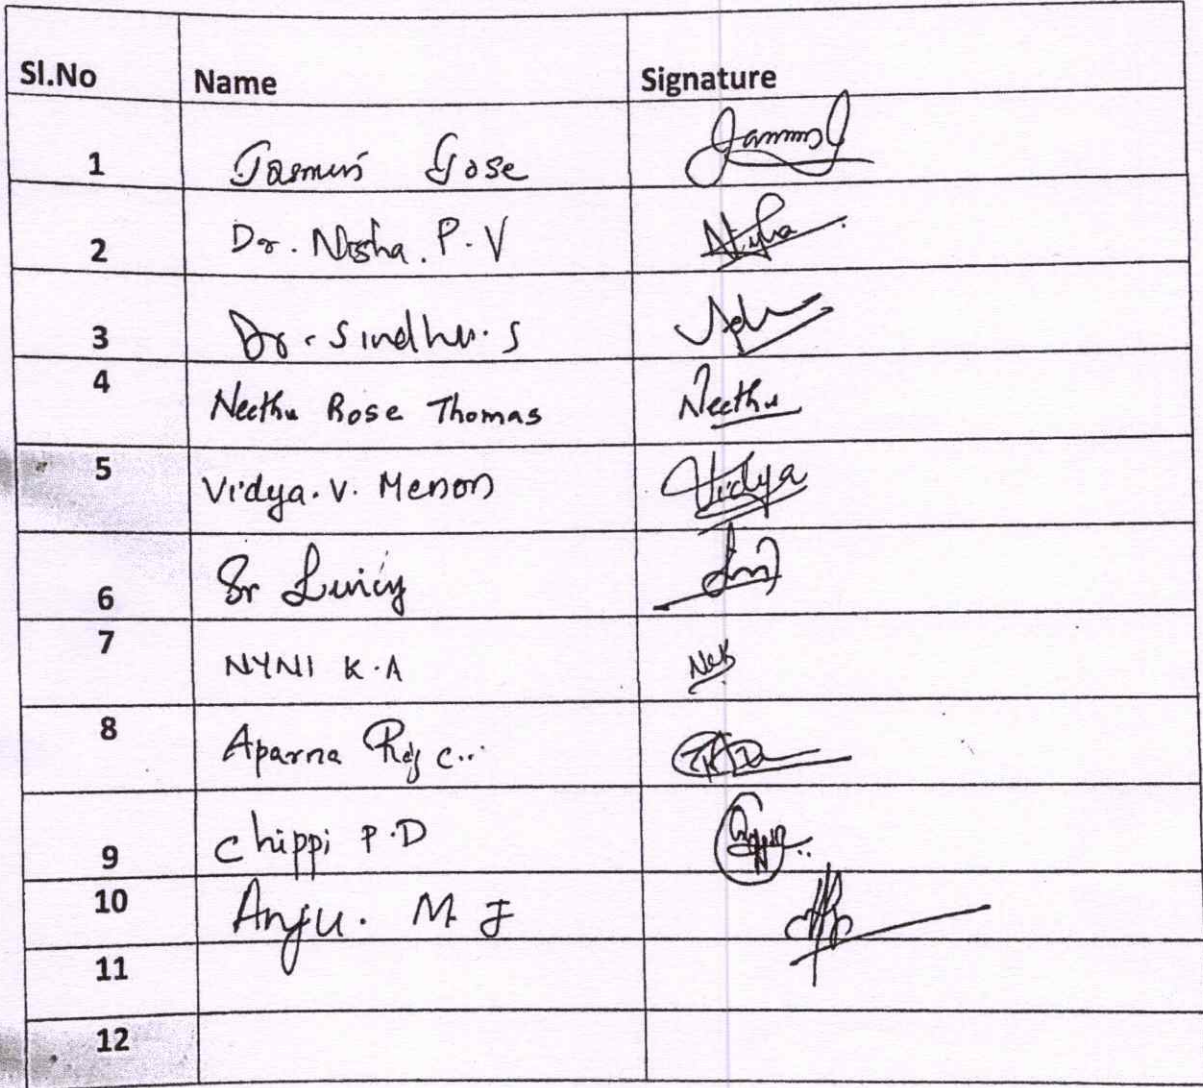 Sl.No Name Signature
1 Jasmin Jose
2 Dr. Nisha. P. V Nisha
3 Dr. Sindhu. S
4 Neethu Rose Thomas Neethu
5 Vidya. V. Menon Vidya
6 Sr Lincy
7 NYNI K.A
8 Aparna Raj C..
9 Chippi P.D
10 Anju. M J
11
12